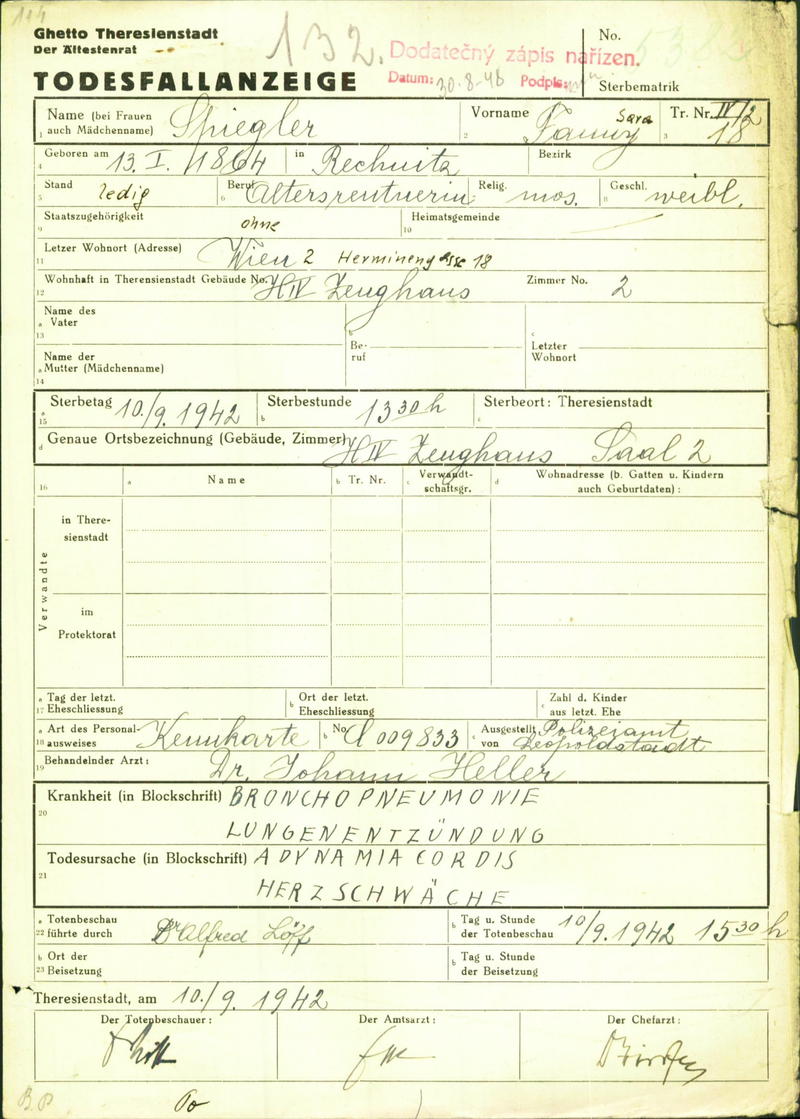 104
Ghetto Theresienstadt
Der Ältestenrat
132.
Dodatečný zápis nařízen.
Datum: 30.8.48 Podpis:
No.
TODESFALLANZEIGE
Sterbematrik
Name (bei Frauen auch Mädchenname) Spiegler
1
Vorname Sara Fanny
2
Tr. Nr. IV/2 18
3
Geboren am 13. I. 1864 in Rechnitz Bezirk
4
Stand ledig Beruf Altersrentnerin Relig. mos. Geschl. weibl.
5 6 8
Staatszugehörigkeit ohne Heimatsgemeinde
9 10
Letzer Wohnort (Adresse) Wien 2 Herminengasse 18
11
Wohnhaft in Theresienstadt Gebäude No. H IV Zeughaus Zimmer No. 2
12
Name des
a Vater
13
b Be-
ruf
c Letzter
Wohnort
Name der
a Mutter (Mädchenname)
14
a Sterbetag 10./9. 1942 b Sterbestunde 13 30 h c Sterbeort: Theresienstadt
15
d Genaue Ortsbezeichnung (Gebäude, Zimmer) H IV Zeughaus Saal 2
16 a Name b Tr. Nr. c Verwandt-
schaftsgr. d Wohnadresse (b. Gatten u. Kindern
auch Geburtdaten) :
Verwandte
in There-
sienstadt
im
Protektorat
a Tag der letzt.
17 Eheschliessung
b Ort der letzt.
Eheschliessung
c Zahl d. Kinder
aus letzt. Ehe
a Art des Personal-
18 ausweises Kennkarte
b No. 009833
c Ausgestellt
von Polizeiamt
Leopoldstadt
Behandelnder Arzt: Dr. Johann Heller
19
Krankheit (in Blockschrift) BRONCHOPNEUMONIE
20
LUNGENENTZÜNDUNG
Todesursache (in Blockschrift) ADYNAMIA CORDIS
21
HERZSCHWÄCHE
a Totenbeschau
22 führte durch Dr Alfred Löff
b Tag u. Stunde
der Totenbeschau 10/9. 1942 15 30 h
b Ort der
23 Beisetzung
b Tag u. Stunde
der Beisetzung
Theresienstadt, am 10./9. 1942
Der Totenbeschauer: Der Amtsarzt: Der Chefarzt: